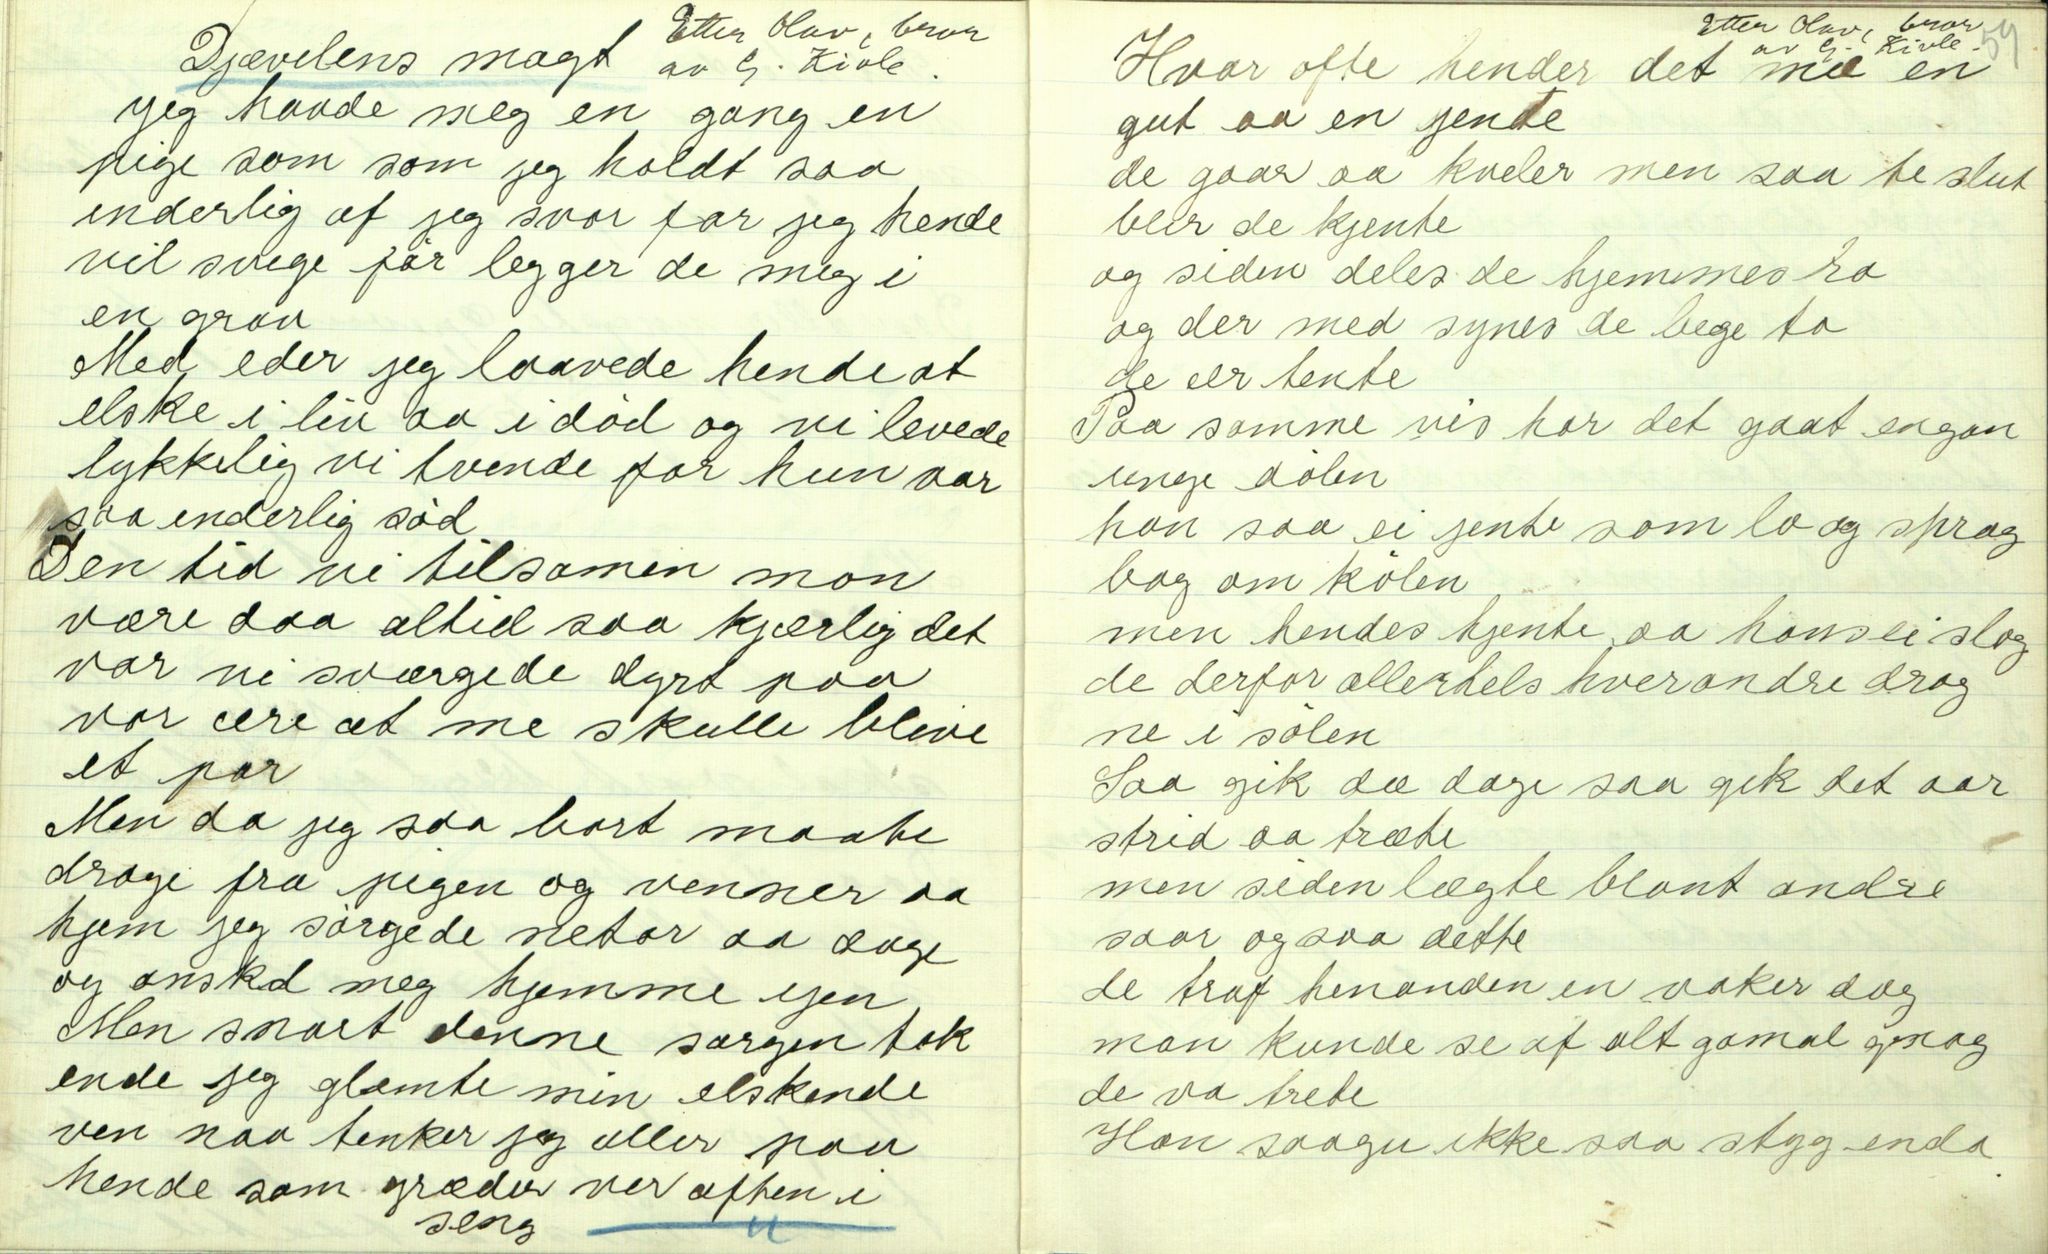 Djævelens magt
Etter Olav, bror
av G. Kivle.
yeg havde meg en gang en
pige som som jeg holdt saa
inderlig af jeg svor for jeg hende
vil svige før legger de meg i
en grav
Med eder jeg laavede hende at
elske i liv aa i død og vi levede
lykkelig vi tvende for hun var
saa enderlig sød
Den tid vi tilsamen mon
være daa altid saa kjærlig det
var vi sværgede dyrt paa
vor ære at me skulle blive
et par
Men da jeg saa bort maate
drage fra pigen og venner aa
hjem jeg sørgede netor aa dage
og ønskd meg hjemme igen
Men snart denne sorgen tok
ende jeg glemte min elskende
ven naa tenker jeg aller paa
hende som græder ver aften i
seng
Etter Olav, bror
av G. Kivle.
54
Hvor ofte hender det mæ en
gut aa en jente
de gaar aa kveler men saa te slut
bler de kjente
og siden deles de hjemmes ra
og der med synes de bege to
de ær tente
Paa samme vis har det gaat engan
unge dølen
han saa ei jente som lo og sprog
bag om kølen
men hendes hjente aa hans ei slog
de derfor allertels hverandre drog
ne i sølen
Saa gik dæ dage saa gik det aar
strid aa træte
men siden lægte blant andre
saar og saa dette
de traf henanden en vaker dag
man kunde se af alt gamal gnag
de va trete
Han saagu ikke saa styg enda